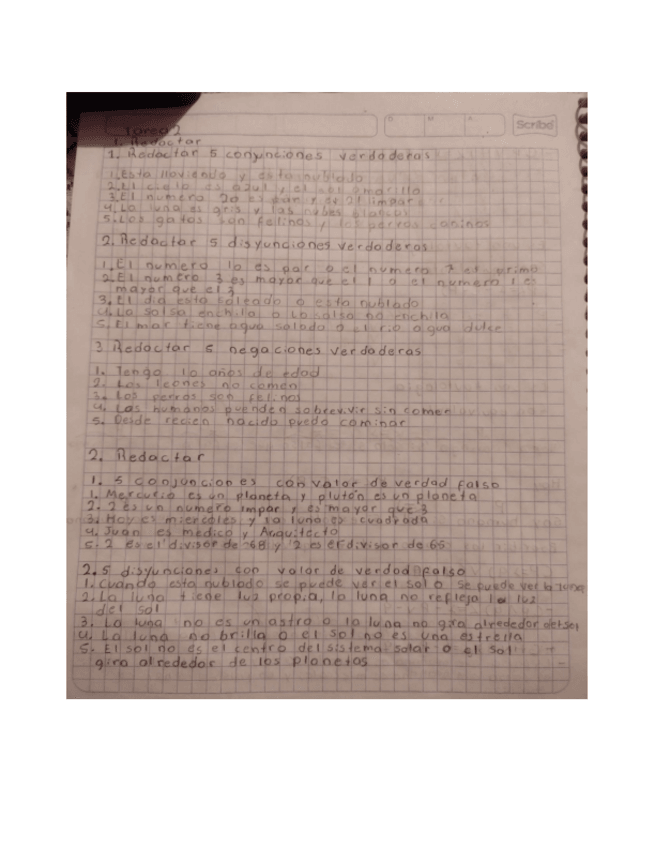 Scribe
Tarea 2
1. Redactar
1. Redactar 5 conjunciones verdaderas
1. Esta lloviendo y esta nublado
2. El cielo es azul y el sol amarillo
3. El numero 20 es par y el 21 impar
4. La luna es gris y las nubes blancas
5. Los gatos son felinos y los perros caninos
2. Redactar 5 disyunciones verdaderas
1. El numero 10 es par o el numero 7 el primo
2. El numero 3 es mayor que el 1 o el numero 1 es
mayor que el 3
3. El dia esta soleado o esta nublado
4. La salsa enchila o la salsa no enchila
5. El mar tiene agua salada o el rio agua dulce
3 Redactar 5 negaciones verdaderas
1. Tengo 10 años de edad
2. Los leones no comen
3. Los perros son felinos
4. Los humanos puenden sobrevivir sin comer
5. Desde recien nacido puedo caminar
2. Redactar
1. 5 conjunciones con valor de verdad falso
1. Mercurio es un planeta y plutón es un planeta
2. 2 es un numero impar y es mayor que 3
3. Hoy es miercoles y la luna es cuadrada
4. Juan es medico y Arquitecto
5. 2 es el divisor de 68 y 2 es el divisor de 65
2. 5 disyunciones con valor de verdad falso
1. Cuando esta nublado se puede ver el sol o se puede ver la luna
2. La luna tiene luz propia, la luna no refleja la luz
del sol
3. La luna no es un astro o la luna no gira alrededor del sol
4. La luna no brilla o el sol no es una estrella
5. El sol no es el centro del sistema solar o el sol
gira alrededor de los planetas